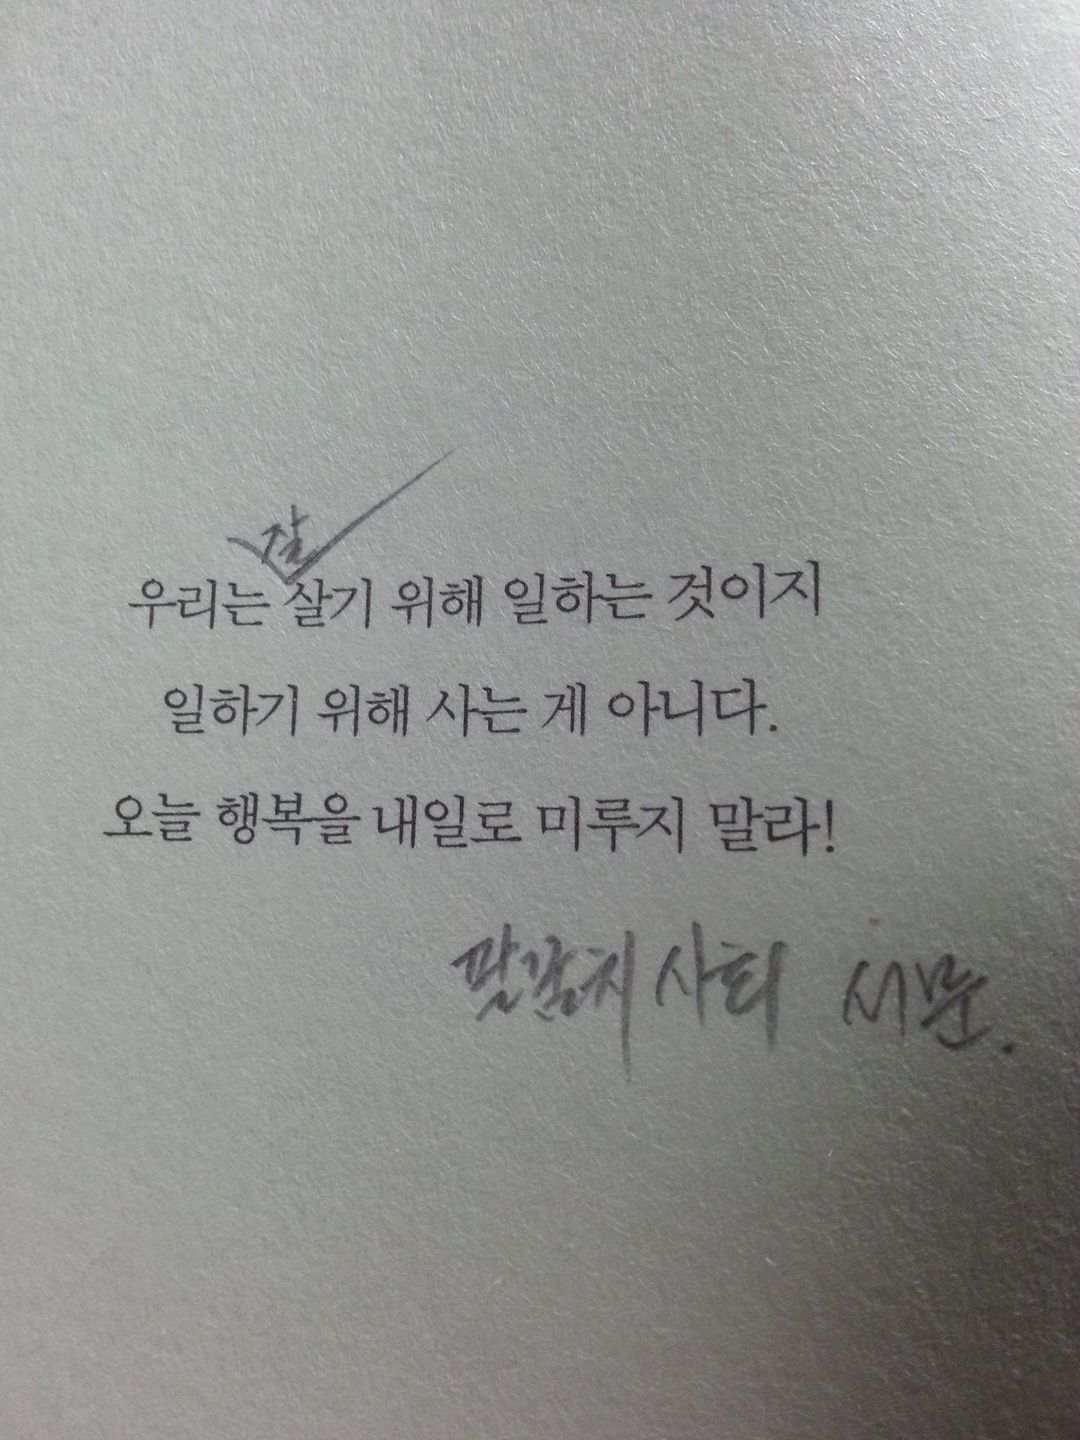 잘
우리는 살기 위해 일하는 것이지
일하기 위해 사는 게 아니다.
오늘 행복을 내일로 미루지 말라!
팔꿈치 사회 서문.